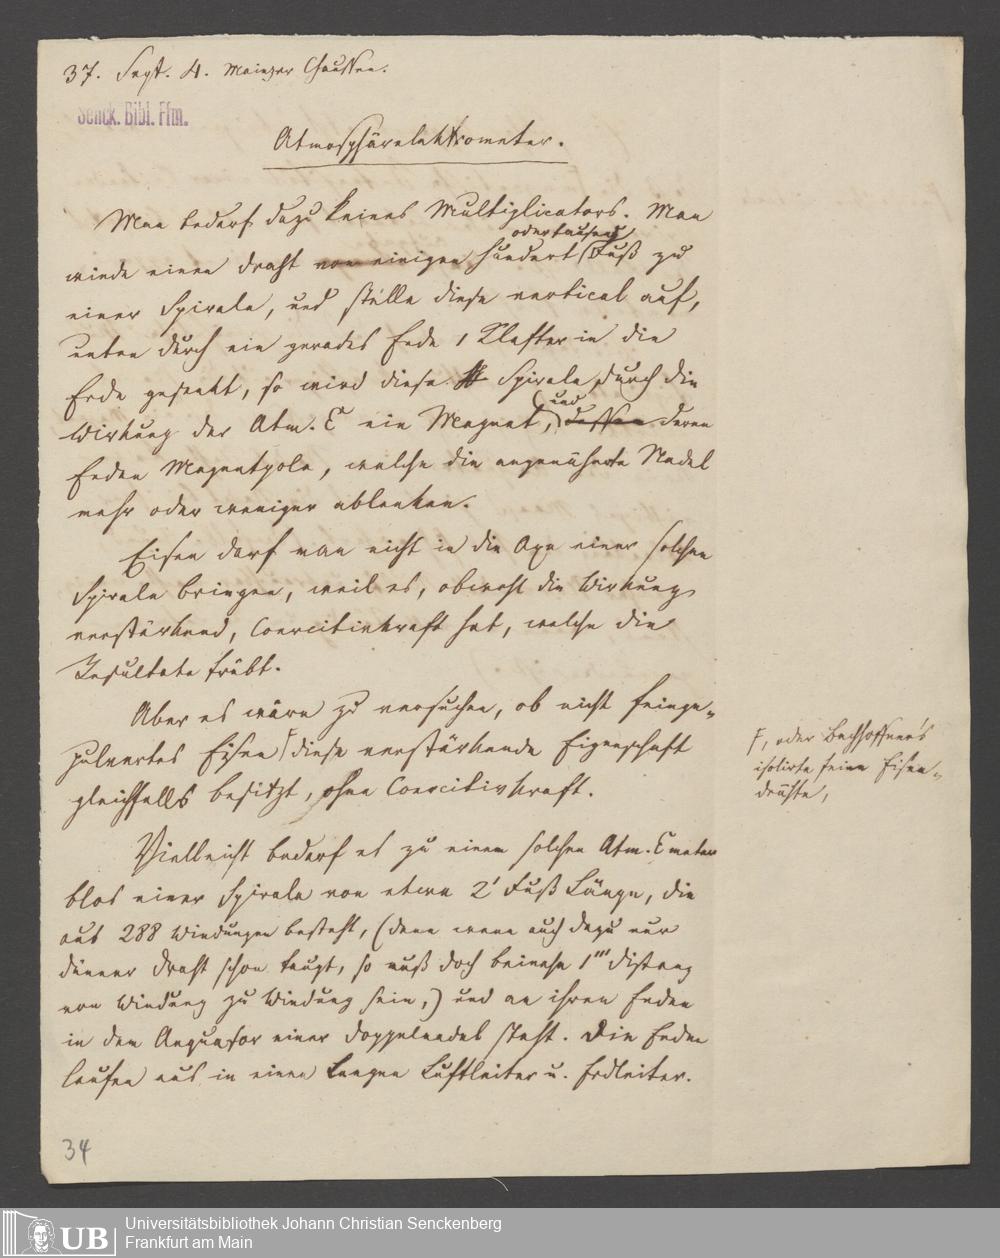 37. Sept. 4. Mainzer Chaussee.
Senck. Bibl. Ffm.
Atmosphärelektrometer.
Man bedarf dazu keines Multiplicators. Man
oder tausend
winde einen Draht von einigen hundert Fuß zu
einer Spirale, und stelle diese vertical auf,
unten durch ein gerades Ende 1 Klafter in die
Erde gesenkt, so wird diese Spirale, durch die
und
Wirkung der Atm. E ein Magnet, dessen deren
Enden Magnetpole, welche die angenäherte Nadel
mehr oder weniger ablenken.
Eisen darf man nicht in die Axe einer solchen
Spirale bringen, weil es, obwohl die Wirkung
verstärkend, Coercitivkraft hat, welche die
Resultate trübt.
Aber es wäre zu versuchen, ob nicht feinge-
pulvertes Eisen F diese verstärkende Eigenschaft
gleichfalls besitzt, ohne Coercitivkraft.
F, oder Bachhoffner's
isolirte feine Eisen-
drähte,
Vielleicht bedarf es zu einem solchen Atm. E meter
blos einer Spirale von etwa 2' Fuß Länge, die
aus 288 Windungen besteht, (denn wenn auch dazu nur
dünner Draht schon taugt, so muß doch beinahe 1''' Distanz
von Windung zu Windung sein,) und an ihren Enden
in dem Aequator einer Doppelnadel steht. Die Enden
laufen aus in einen langen Luftleiter u. Erdleiter.
34
UB
Universitätsbibliothek Johann Christian Senckenberg
Frankfurt am Main